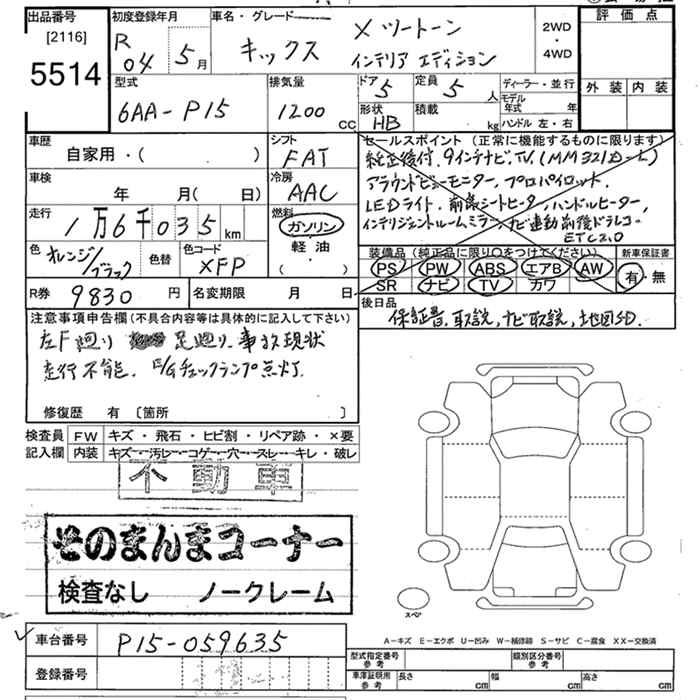 出品番号
[2116]
5514
初度登録年月
R 04 5月
車名・グレード
キックス X ツートーン
インテリア エディション
2WD
・
4WD
評価点
外装 内装
型式
6AA-P15
排気量
1200 CC
ドア 5
定員 5 人
形状 HB
積載 kg
ディーラー・並行
モデル年式 年
ハンドル 左・右
車歴
自家用・( )
シフト
FAT
車検
年 月(日)
冷房
AAC
走行
1万6千035 km
燃料
ガソリン
軽油・
( )
色 オレンジ/ブラック
色替
色コード
XFP
セールスポイント(正常に機能するものに限ります)
純正後付 9インチナビ.TV.(MM321D-L)
アラウンドビューモニター, プロパイロット.
LEDライト. 前席シートヒーター, ハンドルヒーター,
インテリジェントルームミラー, ナビ連動前後ドラレコ.
ETC2.0
装備品(純正品に限り○をつけてください)
PS PW ABS エアB AW
SR ナビ TV カワ
新車保証書
有・無
R券 9830円
名変期限 月 日
後日品
保証書, 取説, ナビ取説, 地図SD.
注意事項申告欄(不具合内容等は具体的に記入して下さい)
左F廻り 足廻り. 事故現状
走行不能. E/Gチェックランプ点灯.
修復歴 有〔箇所 〕
検査員 FW キズ・飛石・ヒビ割・リペア跡・×要
記入欄 内装 キズ・汚レ・コゲ・穴・スレ・キレ・破レ
不動車
そのまんまコーナー
検査なし ノークレーム
スペア
A-キズ E-エクボ U-凹み W-補修跡 S-サビ C-腐食 XX-交換済
車台番号 P15-059635
登録番号
型式指定番号参考
類別区分番号参考
車庫証明用参考 長さ cm 幅 cm 高さ cm